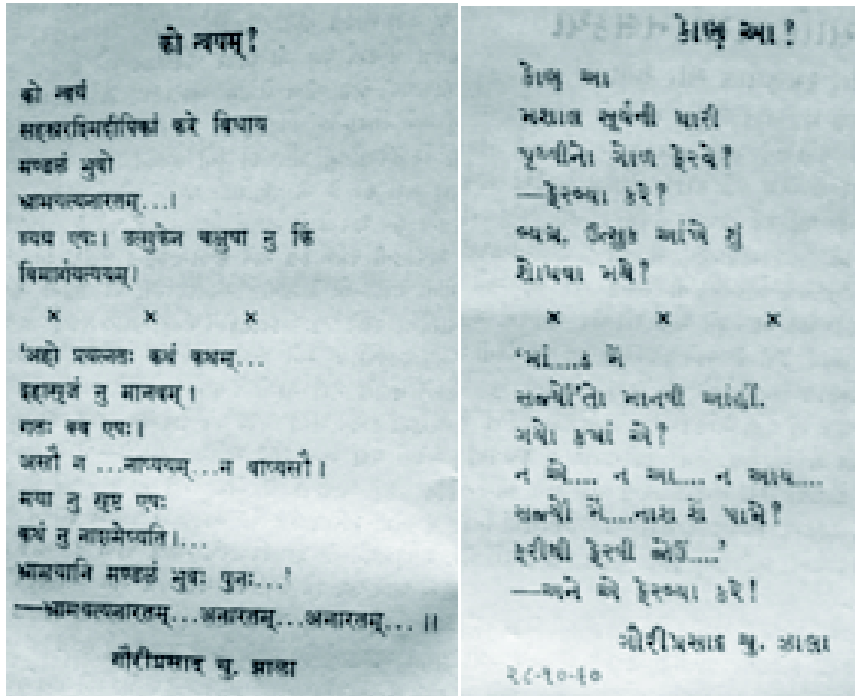 को न्वयम्!
को न्वयं
सहस्ररश्मिदीपिकां करे विधाय
मण्डलं भुवो
भ्रामयत्यनारतम्...।
व्यग्र एषः। उत्सुकेन चक्षुषा नु किं
विमार्गयत्ययम्।
× × ×
'अहो प्रयत्नतः कथं कथम्...
इहासृजं नु मानवम्।
गतः क्व एषः।
असौ न ...नाप्ययम्...न वाप्यसौ।
मया नु सृष्ट एषः
कथं नु नाशमेष्यति।...
भ्रामयानि मण्डलं भुवः पुनः...!
—भ्रामयत्यनारतम्...अनारतम्...अनारतम्... ॥
गौरीप्रसाद चु. झाला
કોણ આ!
કોણ આ
મશાલ સૂર્યની ધારી
પૃથ્વીનો ગોળ ફેરવે?
—ફેરવ્યા કરે?
વ્યગ્ર, ઉત્સુક આંખે શું
શોધવા મથે?
× × ×
'માં....ક મેં
સર્જ્યો'તો માનવી આંહીં.
ગયો ક્યાં એ?
ન એ.... ન આ.... ન આય....
સર્જ્યો મેં....નાશ શેં પામે?
ફરીથી ફેરવી જોઉં....'
—અને એ ફેરવ્યા કરે!
ગૌરીપ્રસાદ ચુ. ઝાલા
૨૮-૧૦-૬૦